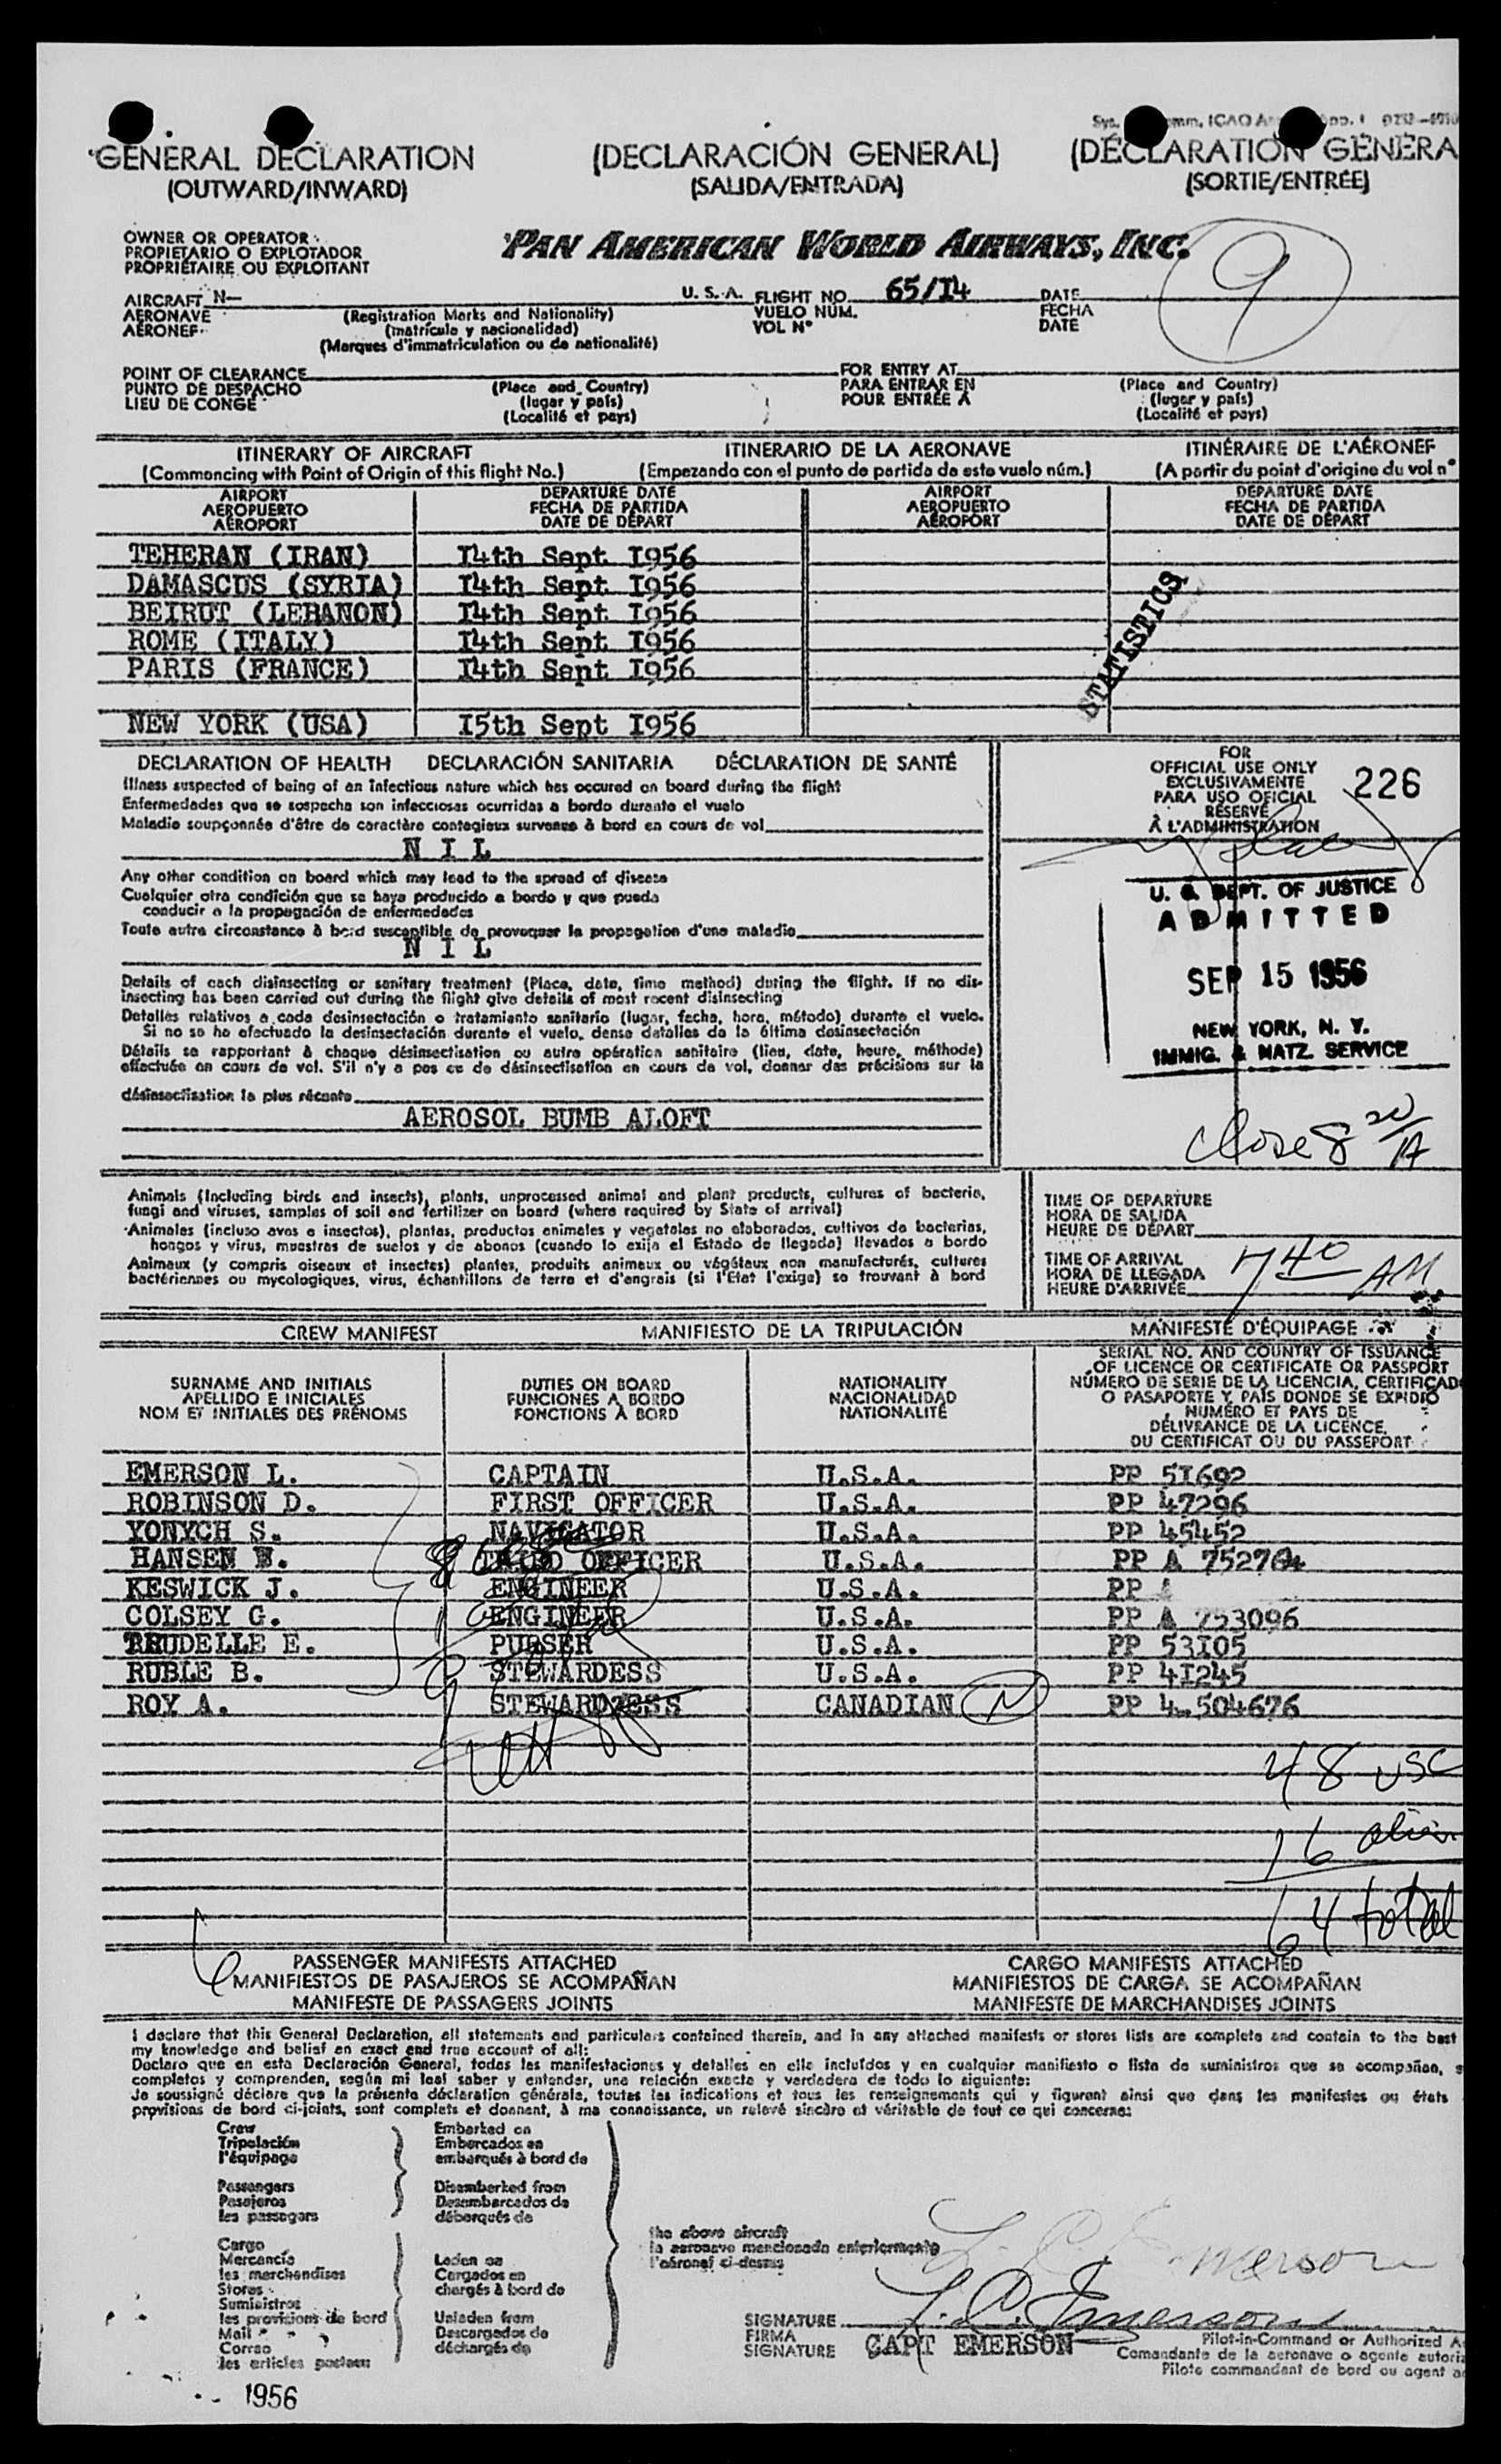 Sys. omm. ICAO A pp. 1 0232-4910
GENERAL DECLARATION (DECLARACIÓN GENERAL) (DÉCLARATION GÉNÉRA
(OUTWARD/INWARD) (SALIDA/ENTRADA) (SORTIE/ENTRÉE)
OWNER OR OPERATOR
PROPIETARIO O EXPLOTADOR
PROPRIÉTAIRE OU EXPLOITANT
PAN AMERICAN WORLD AIRWAYS, INC.
9
AIRCRAFT N— U. S. A. FLIGHT NO. 65/I4 DATE
AERONAVE (Registration Marks and Nationality) VUELO NÚM. FECHA
AÉRONEF (matrícula y nacionalidad) VOL N° DATE
(Marques d'immatriculation ou de nationalité)
POINT OF CLEARANCE FOR ENTRY AT
PUNTO DE DESPACHO (Place and Country) PARA ENTRAR EN (Place and Country)
LIEU DE CONGÉ (lugar y país) POUR ENTRÉE À (lugar y país)
(Localité et pays) (Localité et pays)
ITINERARY OF AIRCRAFT ITINERARIO DE LA AERONAVE ITINÉRAIRE DE L'AÉRONEF
(Commencing with Point of Origin of this flight No.) (Empezando con el punto de partida de este vuelo núm.) (A partir du point d'origine du vol n°
AIRPORT DEPARTURE DATE AIRPORT DEPARTURE DATE
AEROPUERTO FECHA DE PARTIDA AEROPUERTO FECHA DE PARTIDA
AÉROPORT DATE DE DÉPART AÉROPORT DATE DE DÉPART
TEHERAN (IRAN) I4th Sept I956
DAMASCUS (SYRIA) I4th Sept I956
BEIRUT (LEBANON) I4th Sept I956
ROME (ITALY) I4th Sept I956
PARIS (FRANCE) I4th Sept I956
STATISTICS
NEW YORK (USA) I5th Sept I956
DECLARATION OF HEALTH DECLARACIÓN SANITARIA DÉCLARATION DE SANTÉ
Illness suspected of being of an infectious nature which has occured on board during the flight
Enfermedades que se sospecha son infecciosas ocurridas a bordo durante el vuelo
Maladie soupçonnée d'être de caractère contagieux survenue à bord en cours de vol
N I L
Any other condition on board which may lead to the spread of disease
Cualquier otra condición que se haya producido a bordo y que pueda
conducir a la propagación de enfermedades
Toute autre circonstance à bord susceptible de provoquer la propagation d'une maladie
N I L
Details of each disinsecting or sanitary treatment (Place, date, time method) during the flight. If no dis-
insecting has been carried out during the flight give details of most recent disinsecting
Detalles relativos a cada desinsectación o tratamiento sanitario (lugar, fecha, hora, método) durante el vuelo.
Si no se ha efectuado la desinsectación durante el vuelo, dense detalles de la última desinsectación
Détails se rapportant à chaque désinsectisation ou autre opération sanitaire (lieu, date, heure, méthode)
effectuée en cours de vol. S'il n'y a pas eu de désinsectisation en cours de vol, donner des précisions sur la
désinsectisation la plus récente
AEROSOL BUMB ALOFT
FOR
OFFICIAL USE ONLY
EXCLUSIVAMENTE
PARA USO OFICIAL
RÉSERVÉ
À L'ADMINISTRATION
226
U. S. DEPT. OF JUSTICE
ADMITTED
SEP 15 1956
NEW YORK, N. Y.
IMMIG. & NATZ. SERVICE
Close 8 20/A
Animals (Including birds and insects), plants, unprocessed animal and plant products, cultures of bacteria,
fungi and viruses, samples of soil and fertilizer on board (where required by State of arrival)
Animales (incluso aves e insectos), plantas, productos animales y vegetales no elaborados, cultivos de bacterias,
hongos y virus, muestras de suelos y de abonos (cuando lo exija el Estado de llegada) llevados a bordo
Animaux (y compris oiseaux et insectes) plantes, produits animaux ou végétaux non manufacturés, cultures
bactériennes ou mycologiques, virus, échantillons de terre et d'engrais (si l'Etat l'exige) se trouvant à bord
TIME OF DEPARTURE
HORA DE SALIDA
HEURE DE DÉPART
TIME OF ARRIVAL
HORA DE LLEGADA
HEURE D'ARRIVÉE
7 40 AM
CREW MANIFEST MANIFIESTO DE LA TRIPULACIÓN MANIFESTE D'ÉQUIPAGE
SURNAME AND INITIALS
APELLIDO E INICIALES
NOM ET INITIALES DES PRÉNOMS
DUTIES ON BOARD
FUNCIONES A BORDO
FONCTIONS À BORD
NATIONALITY
NACIONALIDAD
NATIONALITÉ
SERIAL NO. AND COUNTRY OF ISSUANCE
OF LICENCE OR CERTIFICATE OR PASSPORT
NÚMERO DE SERIE DE LA LICENCIA, CERTIFICAD
O PASAPORTE Y PAÍS DONDE SE EXPIDIÓ
NUMÉRO ET PAYS DE
DÉLIVRANCE DE LA LICENCE,
DU CERTIFICAT OU DU PASSEPORT
EMERSON L. CAPTAIN U.S.A. PP 5I692
ROBINSON D. FIRST OFFICER U.S.A. PP 47296
YONYCH S. NAVIGATOR U.S.A. PP 45452
HANSEN W. THIRD OFFICER U.S.A. PP A 752764
KESWICK J. ENGINEER U.S.A. PP
COLSEY G. ENGINEER U.S.A. PP A 753096
TRUDELLE E. PURSER U.S.A. PP 53I05
RUBLE B. STEWARDESS U.S.A. PP 4I245
ROY A. STEWARDESS CANADIAN N PP 4. 504676
48 USC
16 alien
64 total
PASSENGER MANIFESTS ATTACHED CARGO MANIFESTS ATTACHED
MANIFIESTOS DE PASAJEROS SE ACOMPAÑAN MANIFIESTOS DE CARGA SE ACOMPAÑAN
MANIFESTE DE PASSAGERS JOINTS MANIFESTE DE MARCHANDISES JOINTS
I declare that this General Declaration, all statements and particulars contained therein, and in any attached manifests or stores lists are complete and contain to the best
my knowledge and belief an exact and true account of all:
Declaro que en esta Declaración General, todas las manifestaciones y detalles en ella incluídos y en cualquier manifiesto o lista de suministros que se acompañan, s
completos y comprenden, según mi leal saber y entender, una relación exacta y verdadera de todo lo siguiente:
Je soussigné déclare que la présente déclaration générale, toutes les indications et tous les renseignements qui y figurent ainsi que dans les manifestes ou états
provisions de bord ci-joints, sont complets et donnent, à ma connaissance, un relevé sincère et véritable de tout ce qui concerne:
Crew
Tripolación
l'équipage
Passengers
Pasajeros
les passagers
Cargo
Mercancía
les marchandises
Stores
Sumisistros
les provisions de bord
Mail
Correo
les articles postaux
Embarked on
Embarcados en
embarqués à bord de
Disembarked from
Desembarcados de
débarqués de
Laden on
Cargados en
chargés à bord de
Unladen from
Descargados de
déchargés de
the above aircraft
la aeronave mencionada anteriormente
l'aéronef ci-dessus
L. C. Emerson
SIGNATURE L. C. Emerson
FIRMA
SIGNATURE
CAPT EMERSON
Pilot-in-Command or Authorized A
Comandante de la aeronave o agente autoriz
Pilote commandant de bord ou agent a
1956